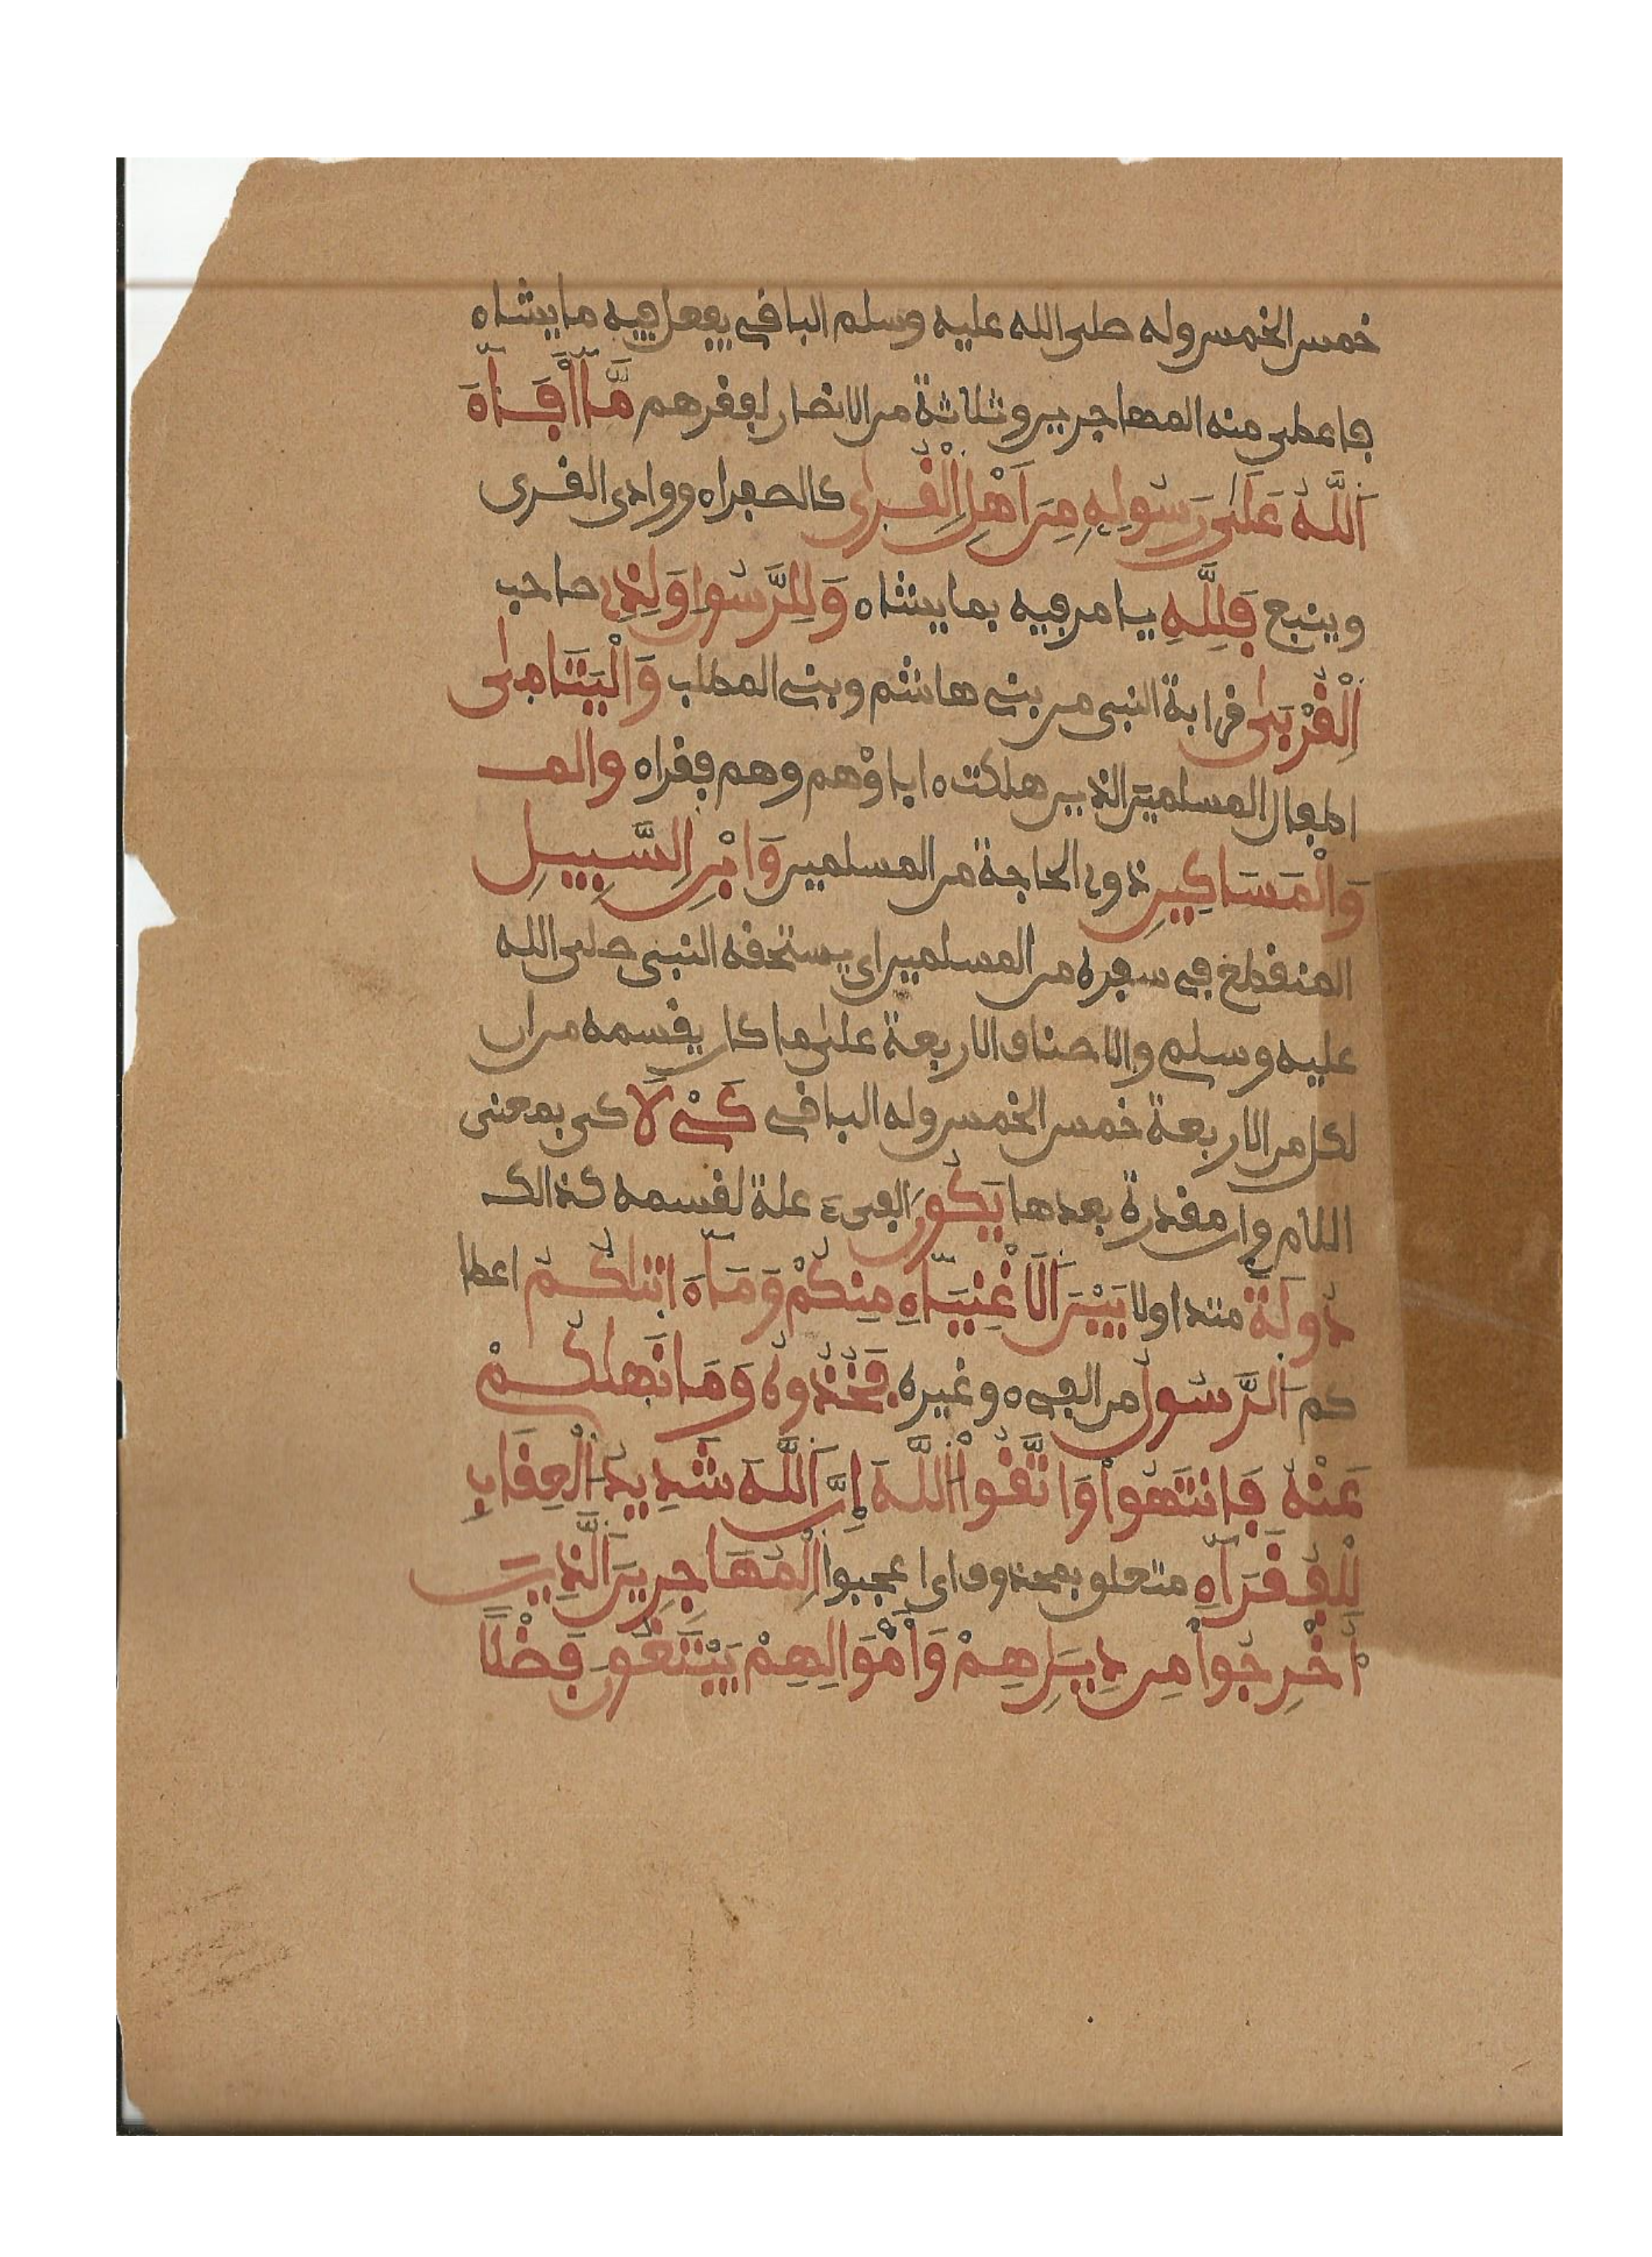 خمس الخمس وله صلى الله عليه وسلم الباقي يفعل فيه ما يشاء
فاعطى منه المهاجرين وثلاثة من الانصار لفقرهم مَّا أَفَاءَ
اَللَّهُ عَلَىٰ رَسُولِهِ مِنَ اَهْلِ اِلْقُرىٰ كالصفراء ووادى القرى
وينبع فَلِلَّهِ يامر فيه بما يشاء وَلِلرَّسُولِ وَلِذِى صاحب
اِلْقُرْبَىٰ قرابة النبى من بنى هاشم وبنى المطلب وَالْيَتَامَىٰ
اطفال المسلمين الذين هلكت ءاباؤهم وهم فقراء والمـ
وَالْمَسَاكِينِ ذوى الحاجة من المسلمين وَابْنِ اِلسَّبِيلِ
المنقطع في سفره من المسلمين اى يستحقه النبى صلى الله
عليه وسلم والاصناف الاربعة على ما كان يقسمه من ان
لكل من الاربعة خمس الخمس وله الباقى كَىْ لَا كى بمعنى
اللام وان مقدرة بعدها يَكُونَ الفىء علة لقسمه كذالك
دُولَةً متداولا بَيْنَ اَلَاغْنِيَاءِ مِنكُمْ وَمَا ءَاتَاكُمُ اعطا
كم اُلرَّسُولُ من الفىء وغيره فَخُذُوهُ وَمَا نَهَاكُمْ
عَنْهُ فَانتَهُواْ وَاتَّقُواْ اُللَّهَ إِنَّ اَللَّهَ شَدِيدُ اُلْعِقَابِ
لِلْفُقَرَاءِ متعلق بمحذوف اى اعجبوا اِلْمُهَاجِرِينَ اَلَّذِينَ
أُخْرِجُواْ مِن دِيَارِهِمْ وَأَمْوَالِهِمْ يَبْتَغُونَ فَضْلًا